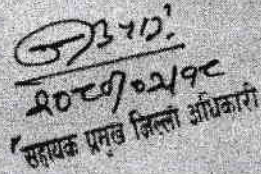 २०८१/०२/१८
सहायक प्रमुख जिल्ला अधिकारी